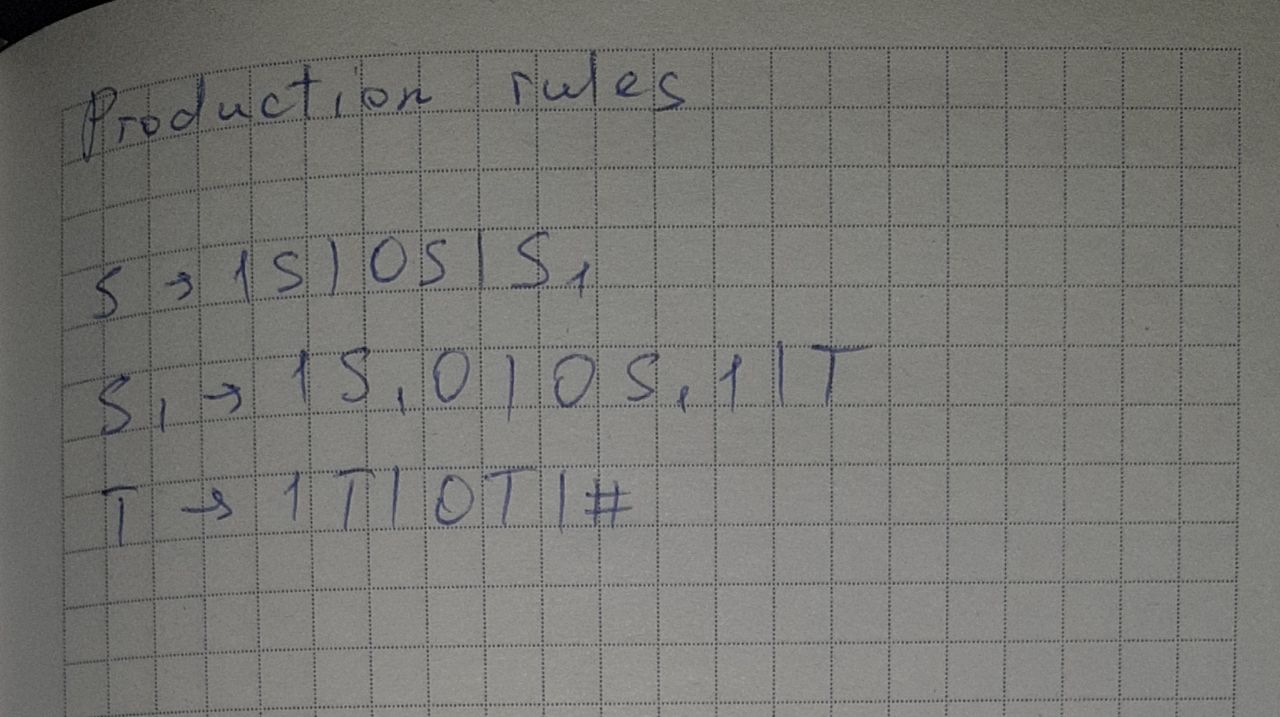 Production rules
S → 1S | 0S | S₁
S₁ → 1S₁0 | 0S₁1 | T
T → 1T | 0T | #